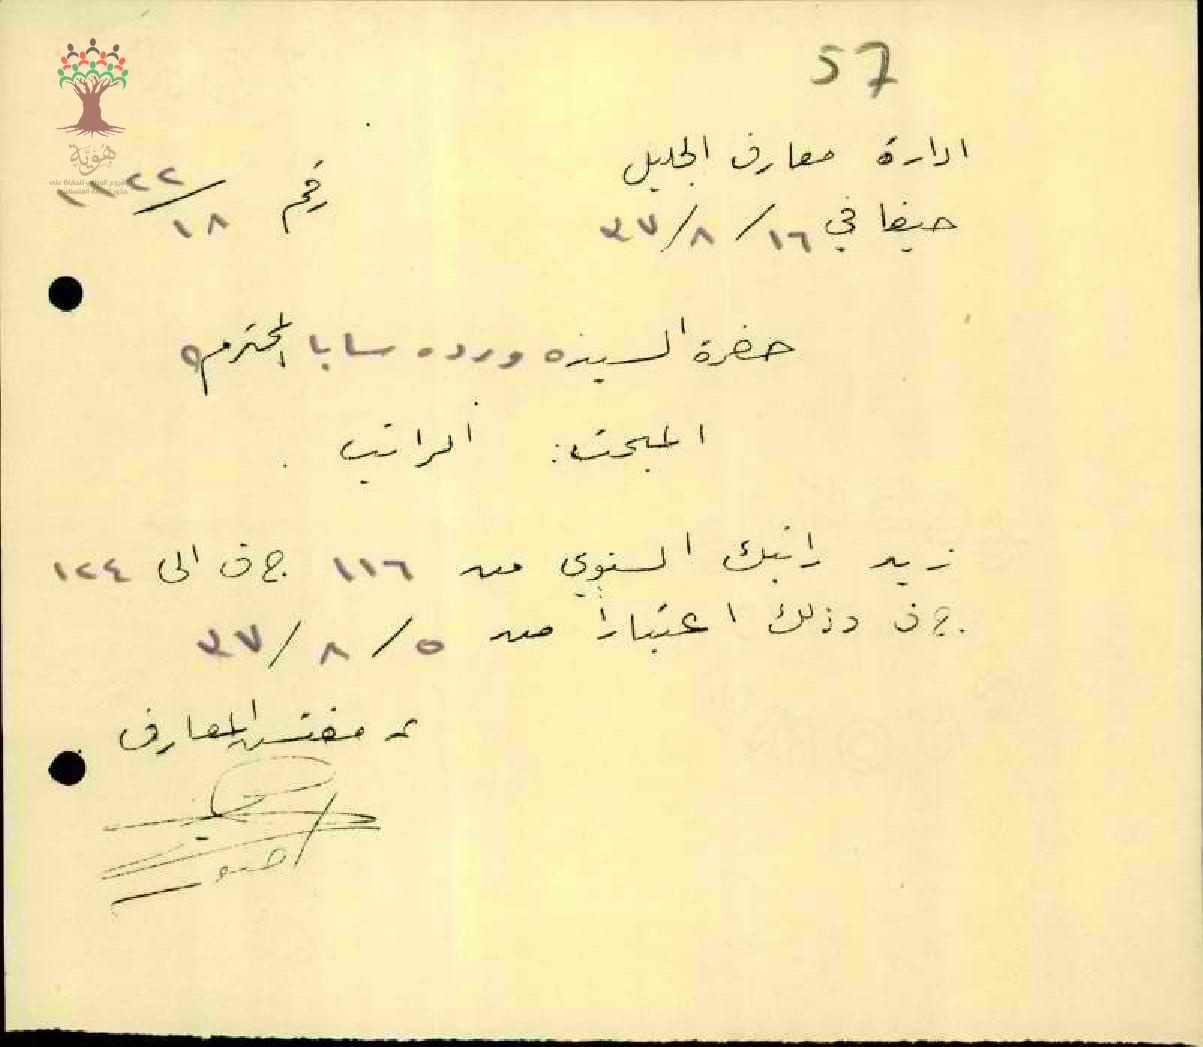 57
ادارة معارف الجليل
رقم ١١٢٢/١٨
حيفا في ١٦/٨/٣٧
هُويَّة
حضرة السيده ورده سابا المحترمه
المبحث: الراتب
زيد راتبك السنوي من ١١٦ ج ف الى ١٢٤
ج ف وذلك اعتباراً من ٥/٨/٣٧
عن مفتش المعارف